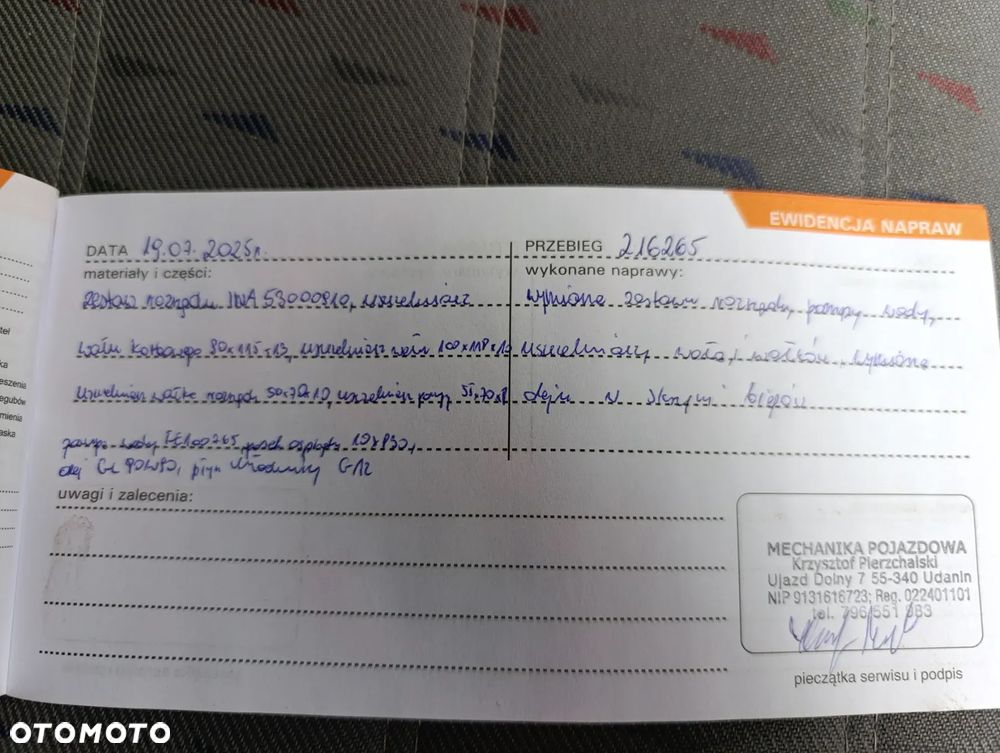 EWIDENCJA NAPRAW
DATA 19.07.2025r.
PRZEBIEG 216265
materiały i części:
wykonane naprawy:
zestaw rozrządu INA 530009210, uszczelniacz
wymiana zestawu rozrządu, pompy wody,
wału korbowego 90x115x13, uszczelniacz wału 100x118x10
uszczelniaczy wału, i wałków, wymiana
uszczelniacz wałka rozrządu 50x70x10, uszczelniacz 55x70x8
oleju w skrzyni biegów
pompa wody
olej GL 80W90, płyn chłodniczy G12
uwagi i zalecenia:
MECHANIKA POJAZDOWA
Krzysztof Pierzchalski
Ujazd Dolny 7 55-340 Udanin
NIP 9131616723; Reg. 022401101
tel. 796 551 983
pieczątka serwisu i podpis
tel
ka
eszenia
egubów
mienia
aska
OTOMOTO